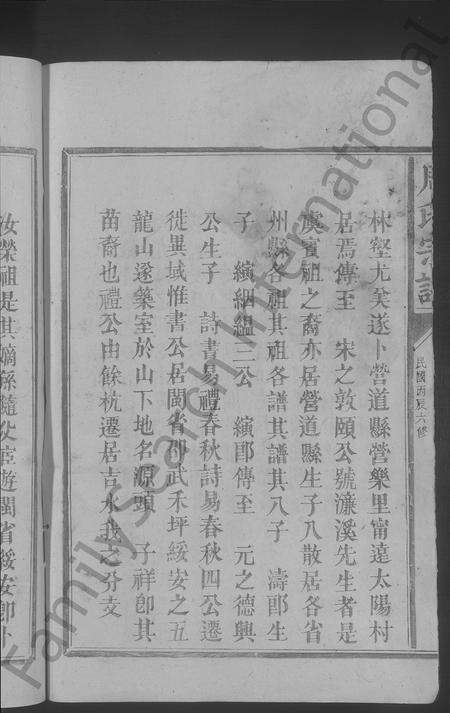 周氏宗譜
民國丙辰六修
林壑尤美遂卜營道縣營樂里甯遠太陽村
居焉傳至 宋之敦頤公號濂溪先生者是
虞賓祖之裔亦居營道縣生子八散居各省
州縣各祖其祖各譜其譜其八子 濤郎生
子 縯絪緼三公 縯郎傳至 元之德興
公生子 詩書易禮春秋詩易春秋四公遷
徙異域惟書公居閩省邵武禾坪綏安之五
龍山遂築室於山下地名源頭 子祥卽其
苗裔也禮公由餘杭遷居吉水我之分支
汝榮祖是其嫡孫隨父宦遊閩省綏安卽卜
FamilySearch International